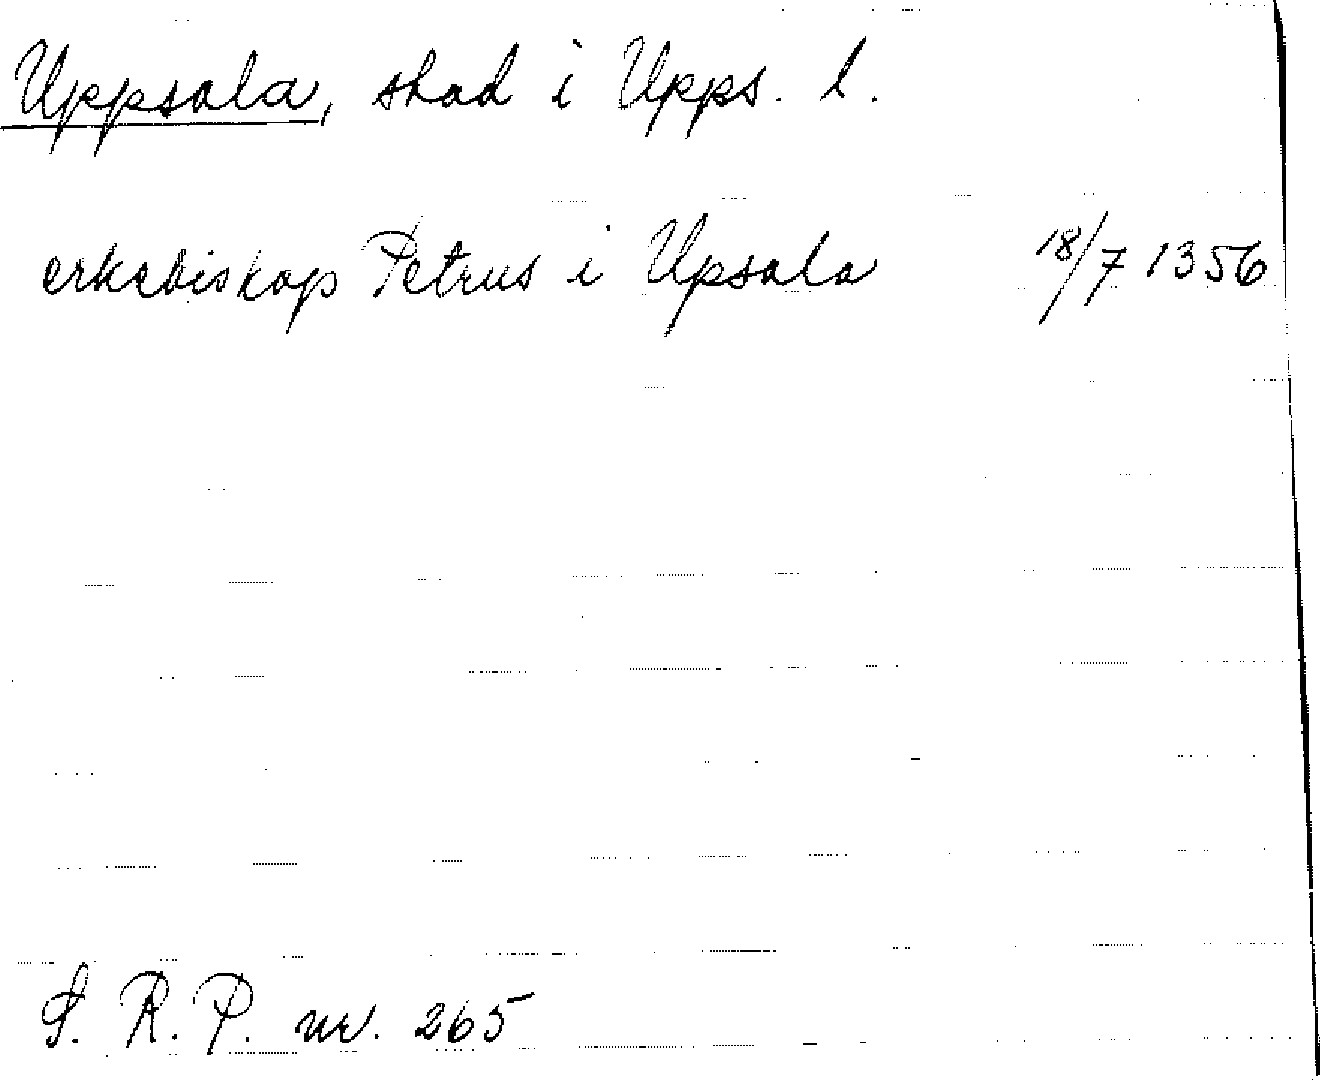 Uppsala, stad i Upps. l.
erkebiskop Petrus i Upsala 18/7 1356
S. R. P. nr. 265